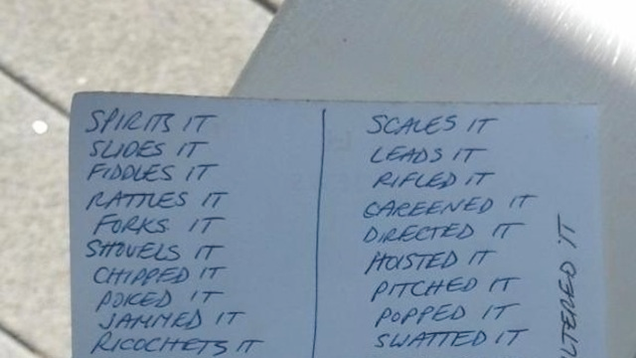 SPIRITS IT
SLIDES IT
FIDDLES IT
RATTLES IT
FORKS IT
SHOVELS IT
CHIPPED IT
POKED IT
JAMMED IT
RICOCHETS IT
SCALES IT
LEADS IT
RIFLED IT
CAREENED IT
DIRECTED IT
HOISTED IT
PITCHED IT
POPPED IT
SWATTED IT